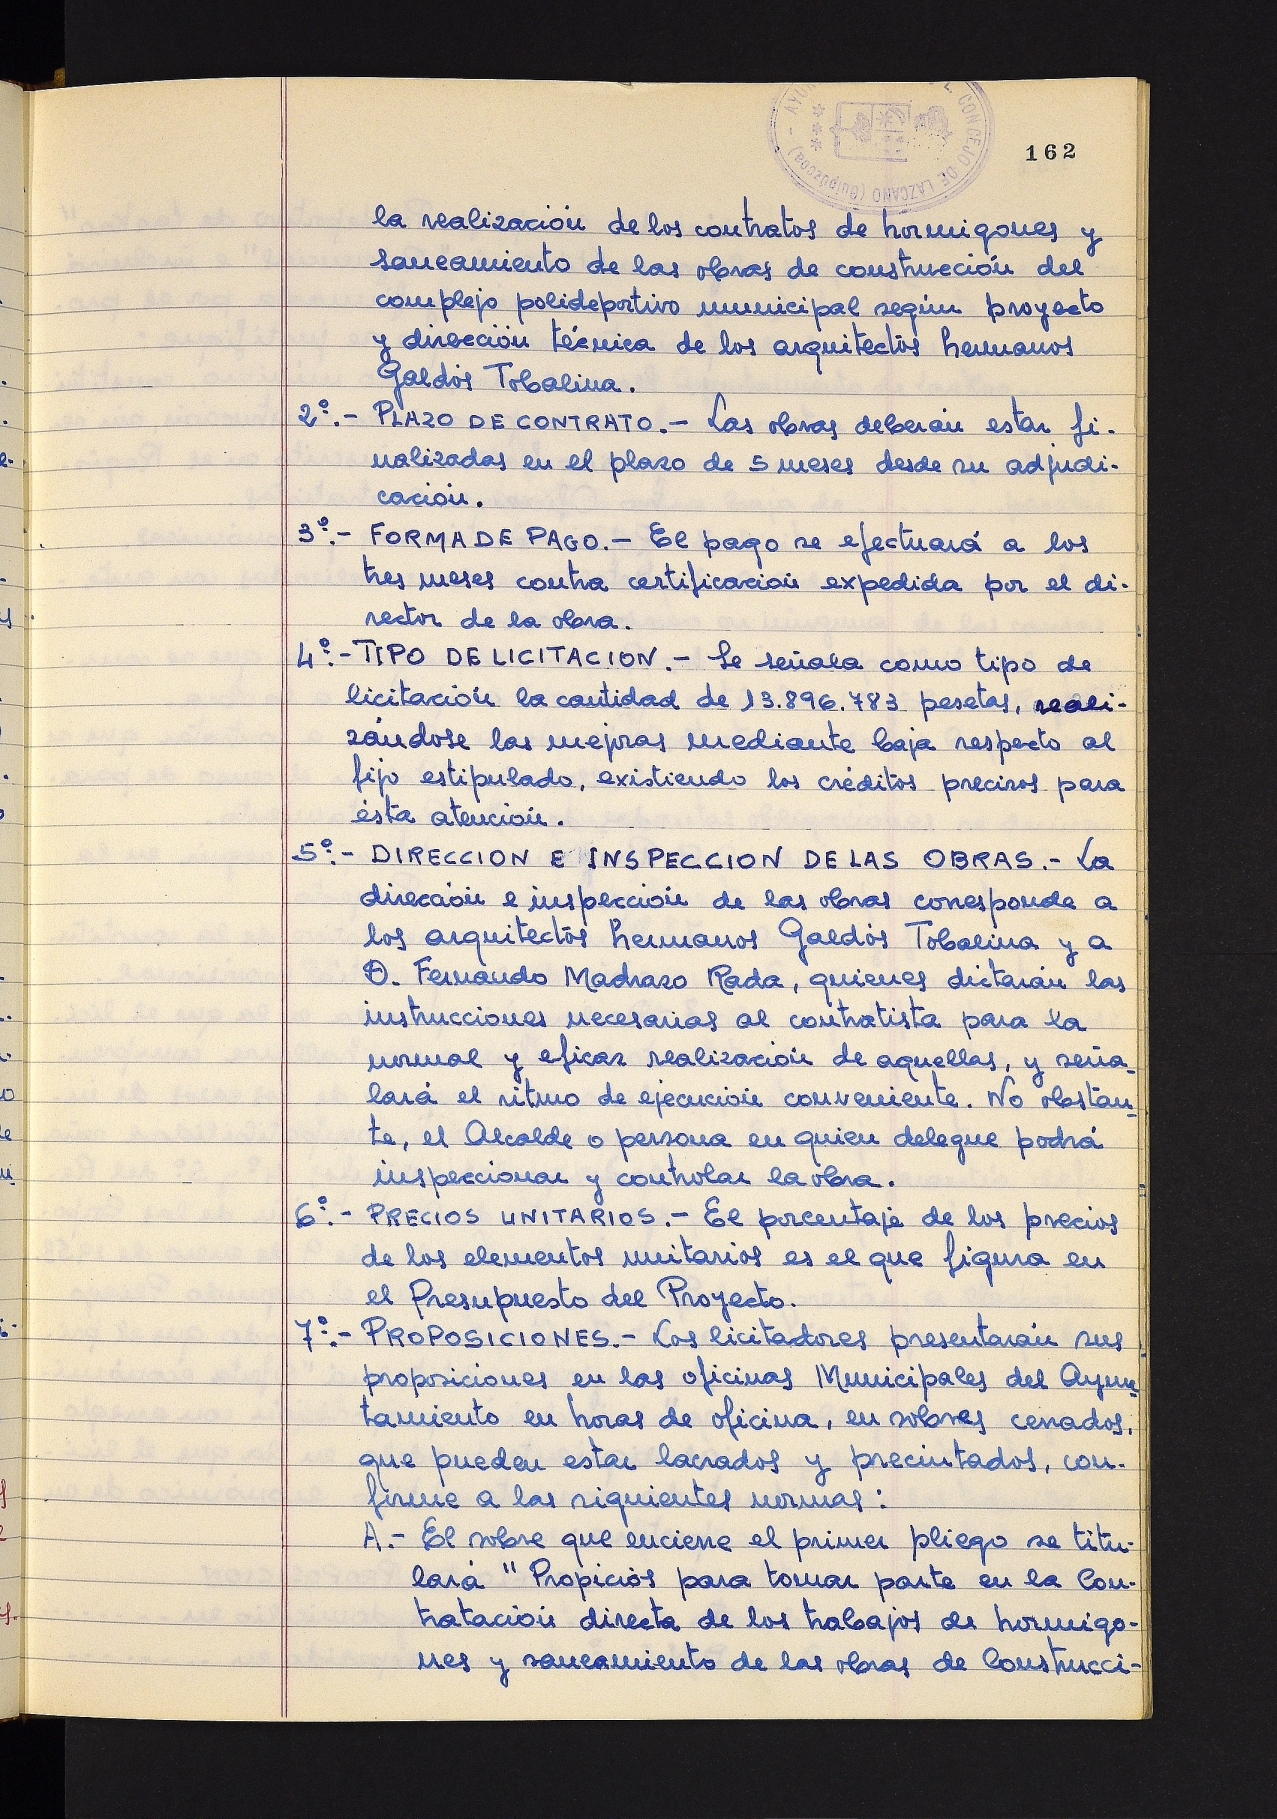 CONCEJO DE LAZCANO (Guipúzcoa) - AYU
162
la realización de los contratos de hormigones y
saneamiento de las obras de construcción del
complejo polideportivo municipal según proyecto
y dirección técnica de los arquitectos hermanos
Galdós Tobalina.
2º.- PLAZO DE CONTRATO.- Las obras deberán estar fi-
nalizadas en el plazo de 5 meses desde su adjudi-
cación.
3º.- FORMA DE PAGO.- El pago se efectuará a los
tres meses contra certificación expedida por el di-
rector de la obra.
4º.- TIPO DE LICITACION.- Se señala como tipo de
licitación la cantidad de 13.896.783 pesetas, reali-
zándose las mejoras mediante baja respecto al
fijo estipulado, existiendo los créditos precisos para
ésta atención.
5º.- DIRECCION E INSPECCION DE LAS OBRAS.- La
dirección e inspección de las obras corresponde a
los arquitectos hermanos Galdós Tobalina y a
D. Fernando Madrazo Rada, quienes dictarán las
instrucciones necesarias al contratista para la
normal y eficaz realización de aquellas, y seña-
lará el ritmo de ejecución conveniente. No obstan-
te, el Alcalde o persona en quien delegue podrá
inspeccionar y controlar la obra.
6º.- PRECIOS UNITARIOS.- El porcentaje de los precios
de los elementos unitarios es el que figura en
el Presupuesto del Proyecto.
7º.- PROPOSICIONES.- Los licitadores presentarán sus
proposiciones en las oficinas Municipales del Ayun-
tamiento en horas de oficina, en sobres cerrados,
que pueden estar lacrados y precintados, con-
firme a las siguientes normas:
A.- El sobre que encierre el primer pliego se titu-
lará "Propicios para tomar parte en la Con-
tratación directa de los trabajos de hormigo-
nes y saneamiento de las obras de Construcci-